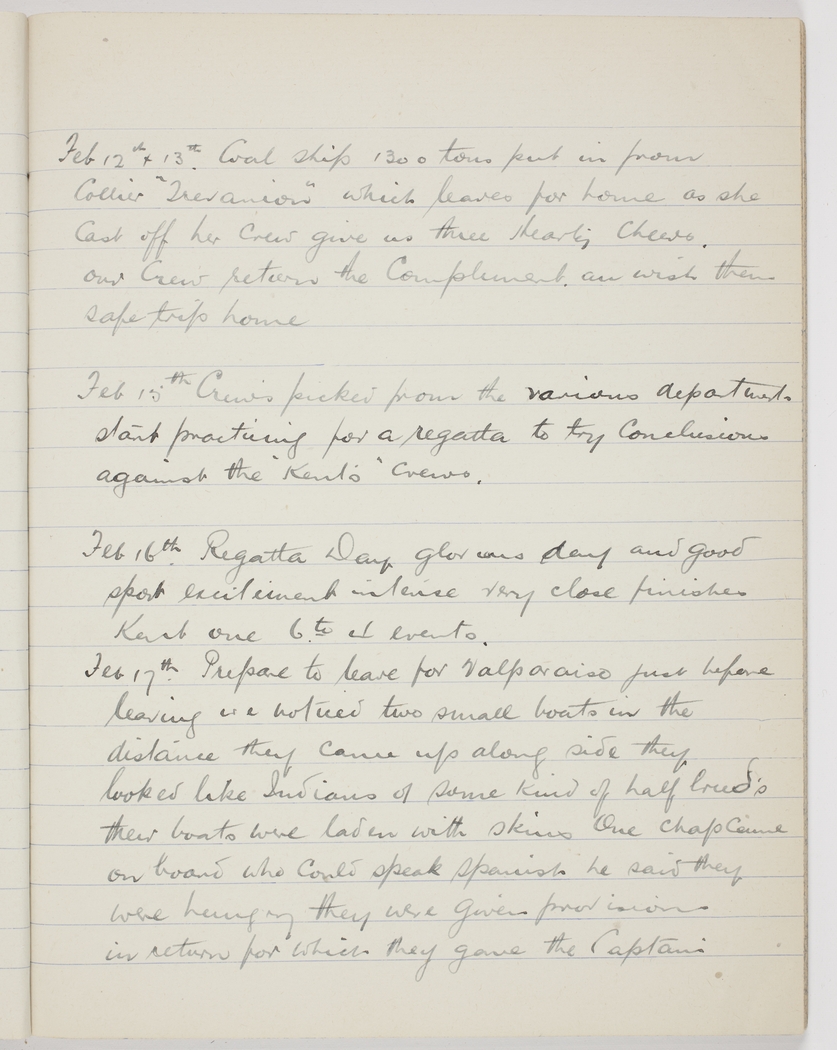 Feb 12th & 13th. Coal ship 1300 tons put in from
Collier "Trevanion" which leaves for home as she
Cast off her Crew give us three hearty Cheers.
our Crew return the Compliment. an wish them
safe trip home
Feb 15th Crews picked from the various departments
start practicing for a regatta to try Conclusions
against the "Kent's" Crews.
Feb 16th. Regatta Day glorious day and good
sport excitement intense very close finishes
Kent one 6. to 4 events.
Feb 17th. Prepare to leave for Valparaiso just before
leaving we noticed two small boats in the
distance they came up along side they
looked like Indians of some kind of half bred's
their boats were laden with skins One chap Came
on board who Could speak spanish he said they
were hungry they were given provisions
in return for which they gave the Captain